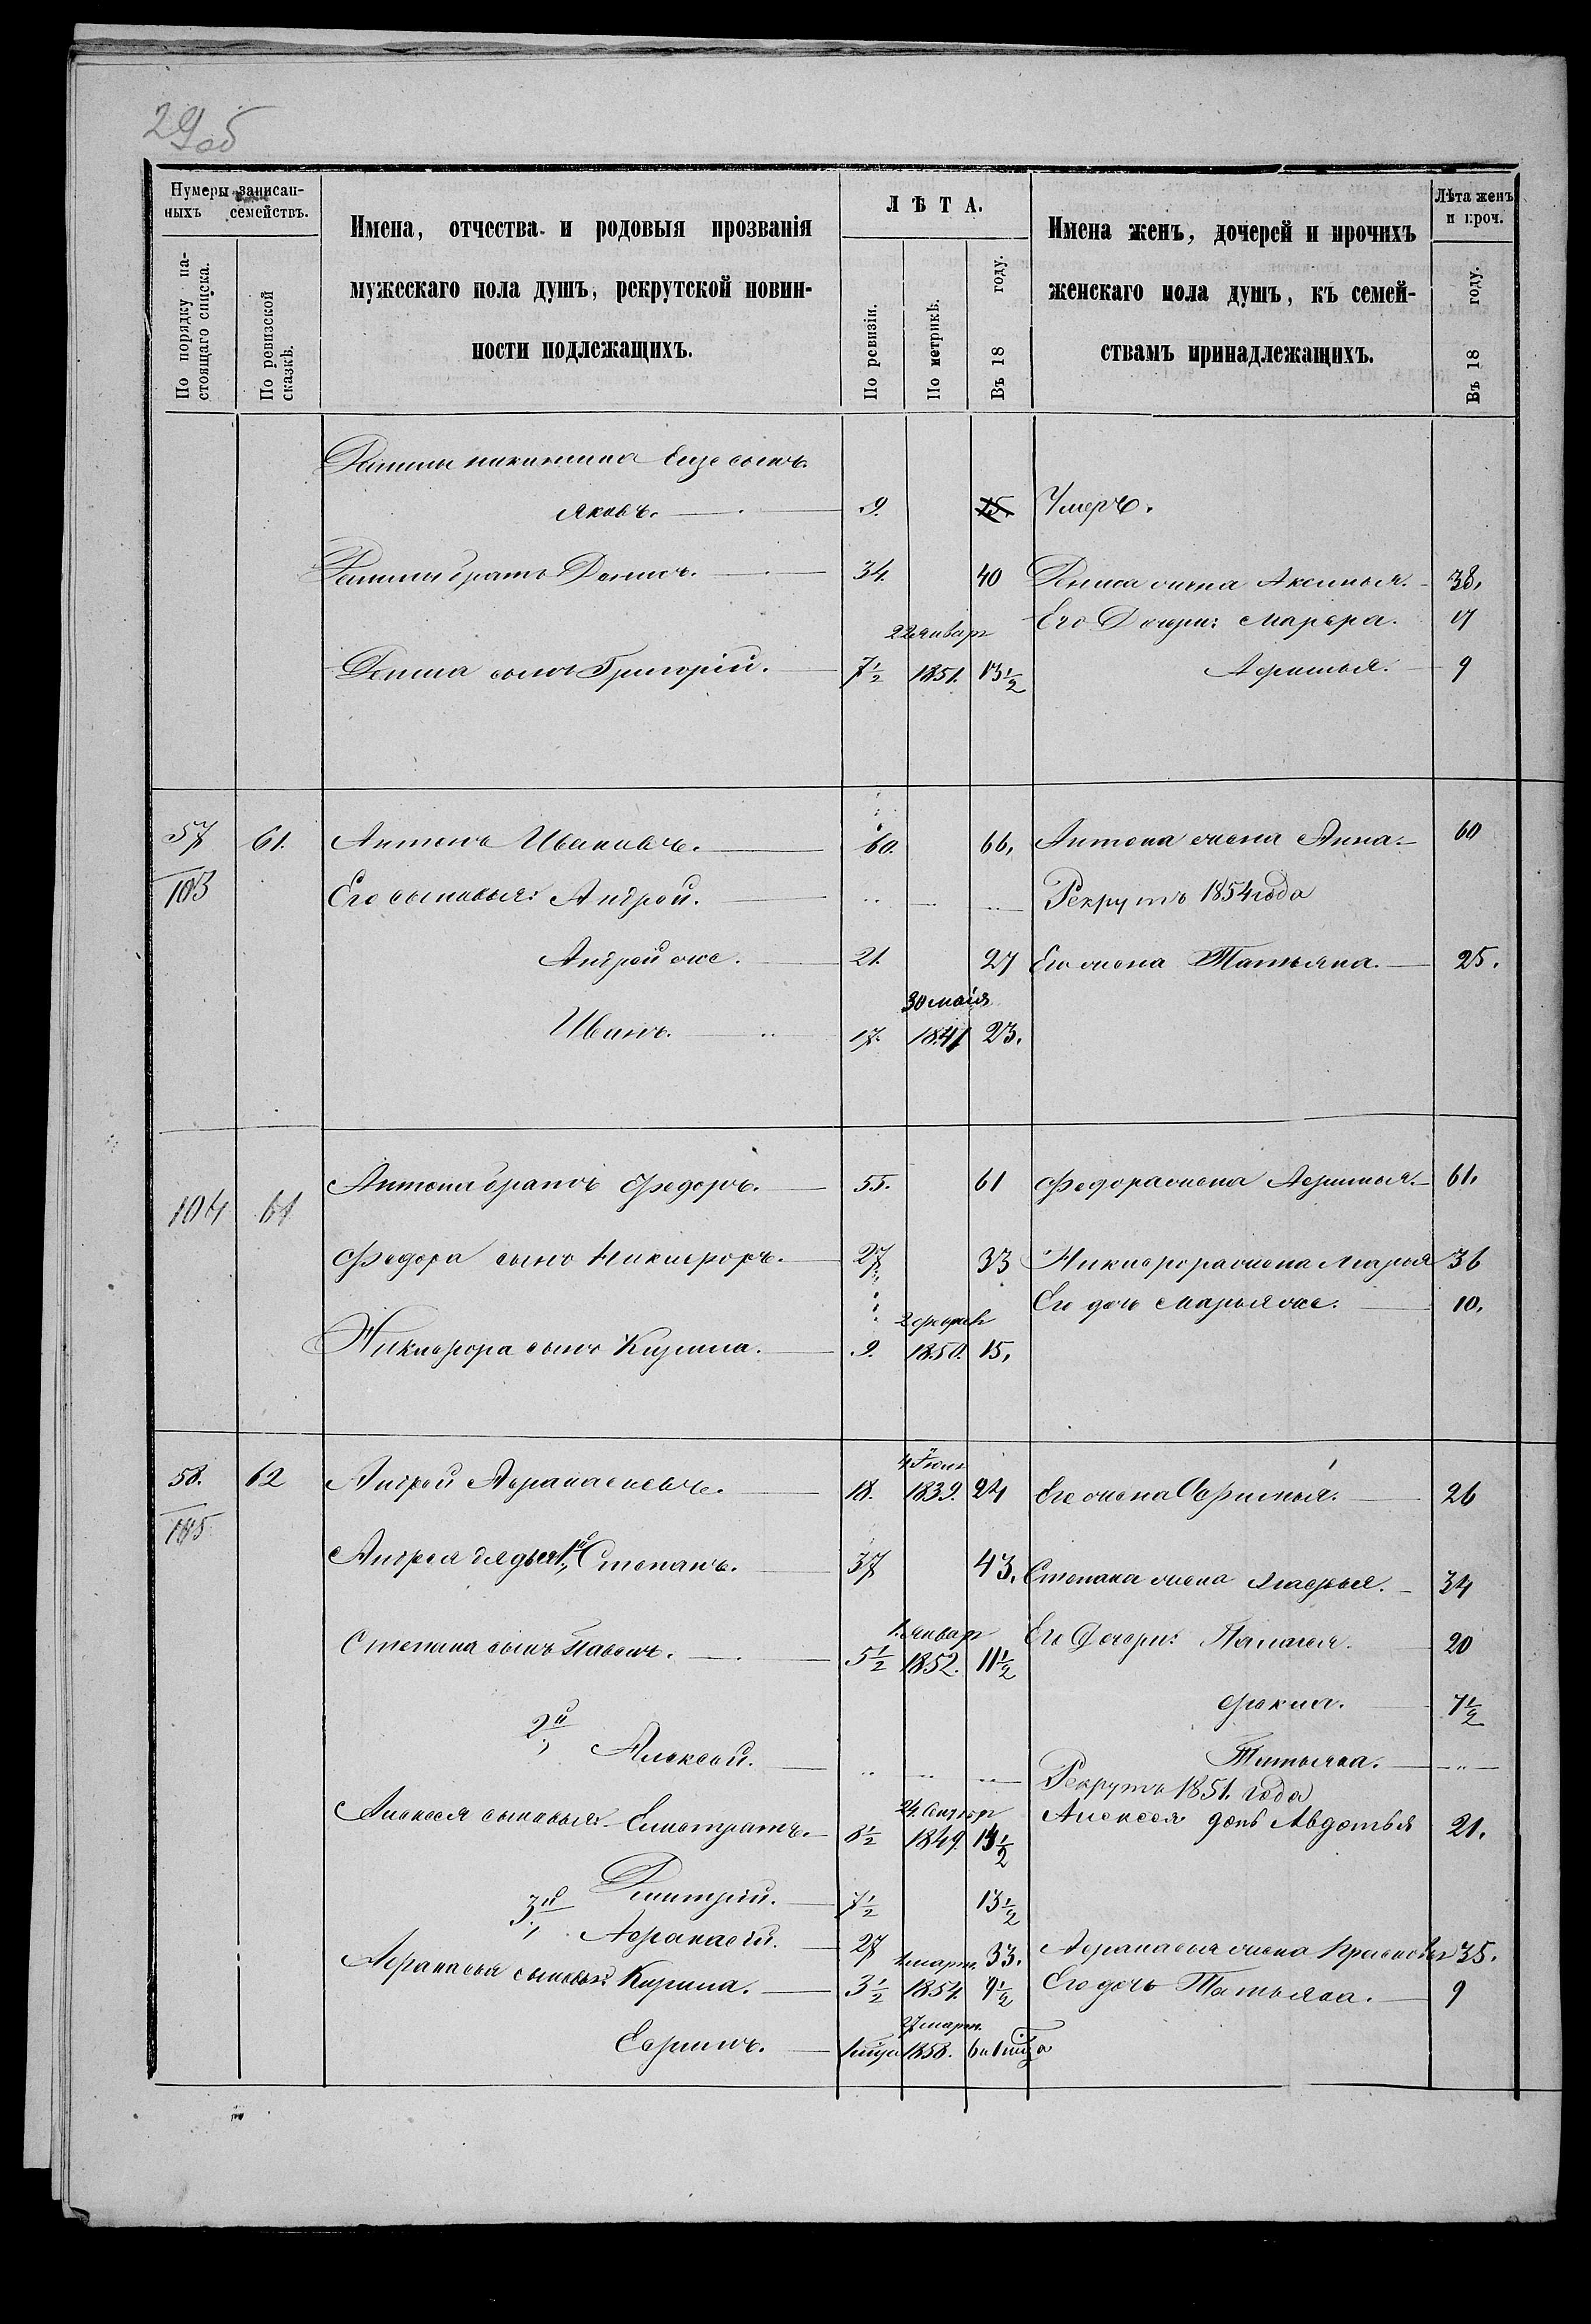 29об
Нумеры записан-
ныхъ семействъ.
По порядку на-
стоящаго списка.
По ревизской
сказкѣ.
Имена, отчества и родовыя прозванія
мужескаго пола душъ, рекрутской повин-
ности подлежащихъ.
ЛѢТА.
По ревизіи.
По метрикѣ.
Въ 18 году.
Имена женъ, дочерей и прочихъ
женскаго пола душъ, къ семей-
ствамъ принадлежащихъ.
Лѣта женъ
и проч.
Въ 18 году.
Еще сынъ
Яковъ. 9. 15. Умеръ.
братъ Денисъ. 34. 40 Дениса жена Аксинья. 38.
22 январ Его Дочери: Марфа. 17
Дениса сынъ Григорій. 7½ 1851. 13½ Афимья. 9
57 61. Антонъ Ивановъ. 60. 66. Антона жена Анна. 60
103 Его сыновья: Андрей. Рекрутъ 1854 года
Андрей же. 21. 27 Его жена Татьяна. 25.
30 маія
Иванъ. 17. 1841 23.
104 61 Антона братъ Федоръ. 55. 61 Федора жена Афимья. 61.
Федора сынъ Никифоръ. 27. 33 Никифора жена Марья 36
Его дочь Марья же. 10.
2 февр
Никифора сынъ Кузьма. 9. 1850. 15.
4 Іюня
58. 62 Андрей Афанасьевъ. 18. 1839. 24 Его жена Афимья. 26
105
Андрея дядья 1й, Степанъ. 37 43. Степана жена 34
1 январ Его Дочери: Палагея. 20
Степана сынъ Павелъ. 5½ 1852. 11½
Фокла. 7½
2й, Алексѣй. Татьяна.
Рекрутъ 1851. года
24. Сентябр
Алексея сыновья: Елистратъ. 8½ 1849. 14½ Алексея дочь Авдотья 21.
Дмитрій. 7½ 13½
3й, Афанасій. 27 33. Афанасья жена 35.
марта.
Афанасья сыновья: Кузьма. 3½ 1854. 9½ Его дочь Татьяна. 9
27 марта.
Ефимъ. 1858.